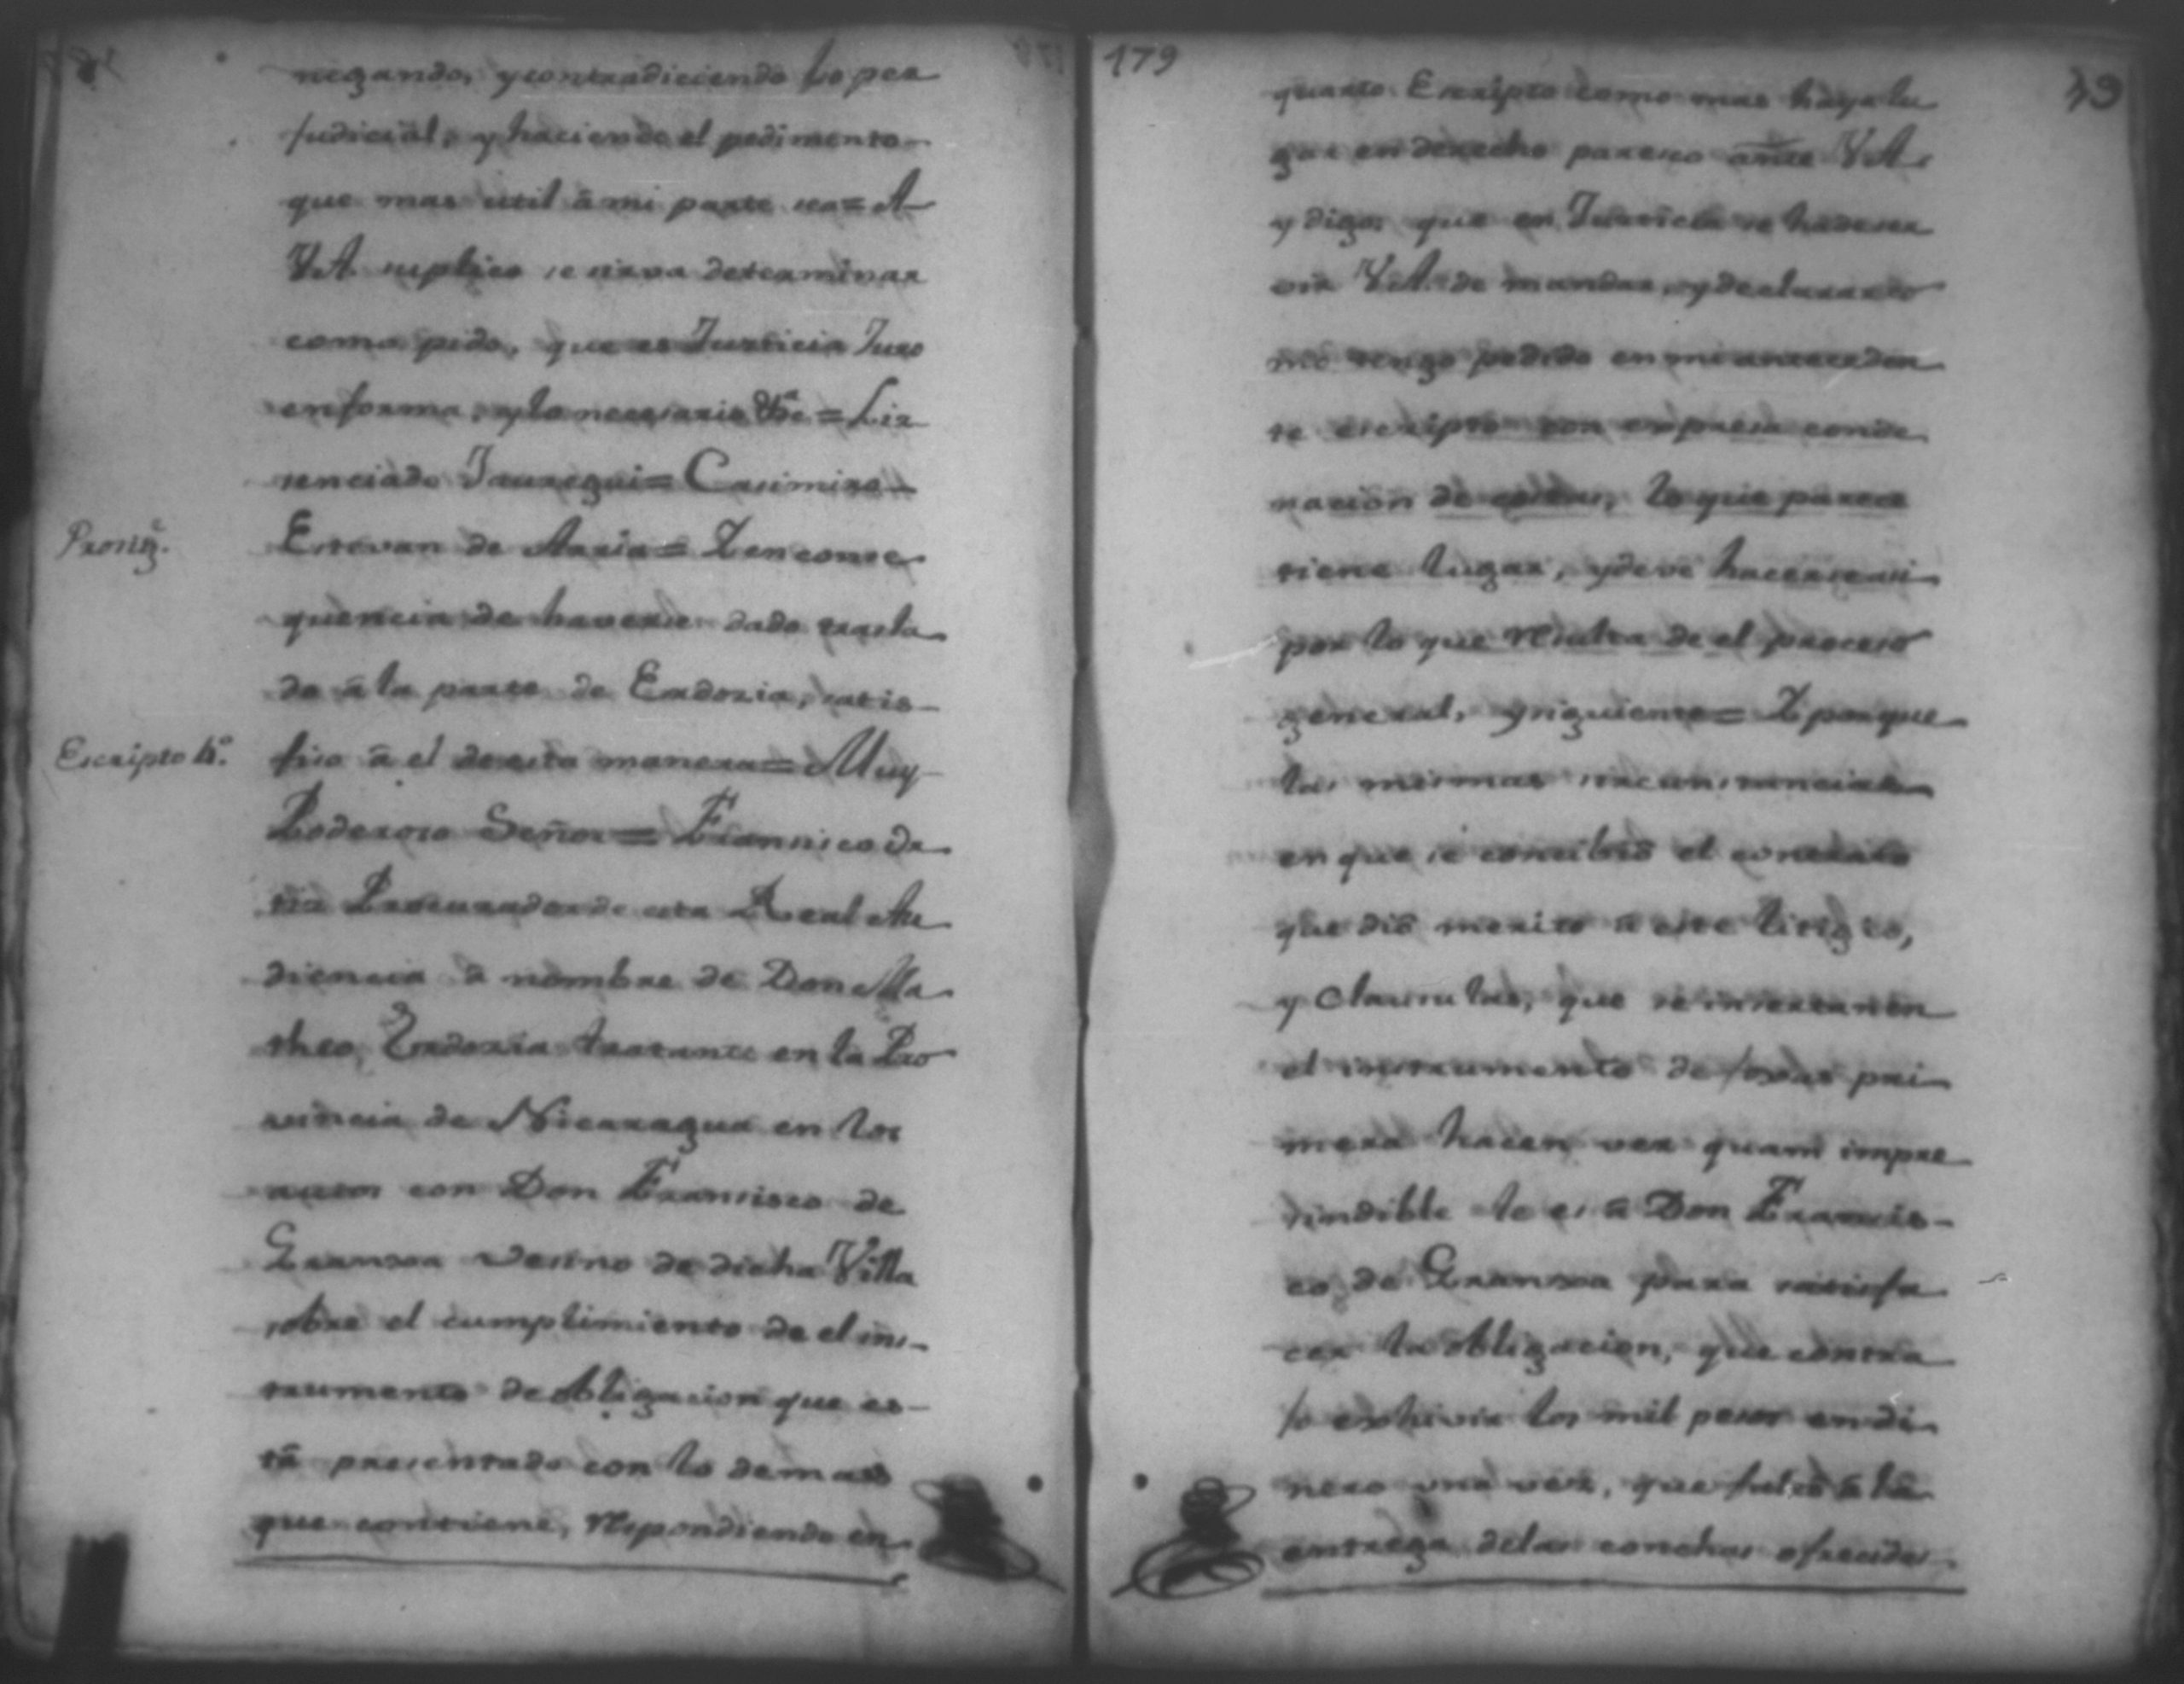 negando, y contradiciendo lo per
judicial, y haciendo el pedimento
que mas util â mi parte sea = A
V.A. suplico se sirva determinar
como pido, que es Justicia Juro
en forma, y lo necesario &c = Liz
senciado Jauregui = Casimiro
Prosig.
Estevan de Arria = Y en conse
quencia de haverse dado trasla
do â la parte de Endoria, satis
Escripto 4º.
fiso â el de esta manera = Muy
Poderoso Señor = Francisco de
Procurador de esta Real Au
diencia â nombre de Don Ma
theo Endoria tratante en la Pro
vincia de Nicaragua en los
autos con Don Francisco de
Granxa vesino de dicha Villa
sobre el cumplimiento de el ins
trumento de obligacion que es
tâ presentado con lo demas
que contiene, respondiendo en
179
39
quarto Escripto como mas haya lu
gar en derecho paresco ante V.A.
y digo, que en Justicia se ha de ser
vir V.A. de mandar, y declarar co
mo tengo pedido en mi anteceden
te escripto con expresa conde
nacion de costas, lo que parece
tiene lugar, y deve hacerse asi
por lo que resulta de el proceso
general, y siguiente = Y porque
las mismas circunstancias
en que se concibiô el contrato
que diô merito â este litigio,
y Clausulas, que se insertan en
el instrumento de foxas pri
mera hacen ver quam impre
sindible le es â Don Francis
co de Granxa para satisfa
cer la obligacion, que contra
jo exhivir los mil pesos en di
nero una vez, que faltô â la
entrega de las conchas ofrecidas